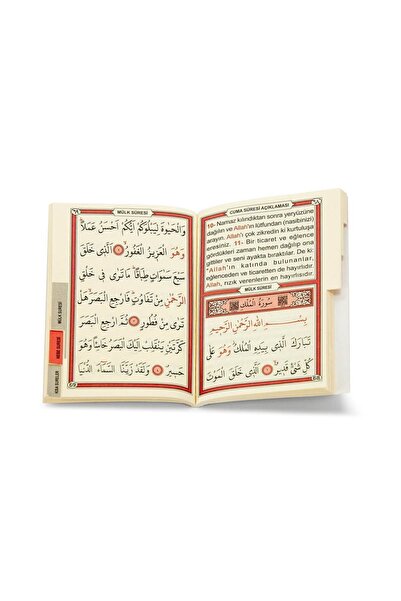 CUMA SÛRESİ AÇIKLAMASI
٦٨
10- Namaz kılındıktan sonra yeryüzüne
dağılın ve Allah'ın lütfundan (nasibinizi)
arayın. Allah'ı çok zikredin ki kurtuluşa
eresiniz. 11- Bir ticaret ve eğlence
gördükleri zaman hemen dağılıp ona
gittiler ve seni ayakta bıraktılar. De ki:
"Allah'ın katında bulunanlar,
eğlenceden ve ticaretten de hayırlısıdır.
Allah, rızık verenlerin en hayırlısıdır.
MÜLK SÛRESİ
سُورَةُ الْمُلْكِ
بِسْمِ اللهِ الرَّحْمٰنِ الرَّحِيمِ
تَبَارَكَ الَّذِي بِيَدِهِ الْمُلْكُ وَهُوَ عَلَى
كُلِّ شَيْءٍ قَدِيرٌ الَّذِي خَلَقَ الْمَوْتَ
68
٦٩
MÜLK SÛRESİ
وَالْحَيٰوةَ لِيَبْلُوَكُمْ اَيُّكُمْ اَحْسَنُ عَمَلًا
وَهُوَ الْعَزِيزُ الْغَفُورُ الَّذِي خَلَقَ
سَبْعَ سَمٰوَاتٍ طِبَاقًا مَا تَرٰى فِي خَلْقِ
الرَّحْمٰنِ مِنْ تَفَاوُتٍ فَارْجِعِ الْبَصَرَ هَلْ
تَرٰى مِنْ فُطُورٍ ثُمَّ ارْجِعِ الْبَصَرَ
كَرَّتَيْنِ يَنْقَلِبْ اِلَيْكَ الْبَصَرُ خَاسِئًا وَهُوَ
حَسِيرٌ وَلَقَدْ زَيَّنَّا السَّمَاءَ الدُّنْيَا
69
MÜLK SURESİ
NEBE SURESİ
KISA SURELER